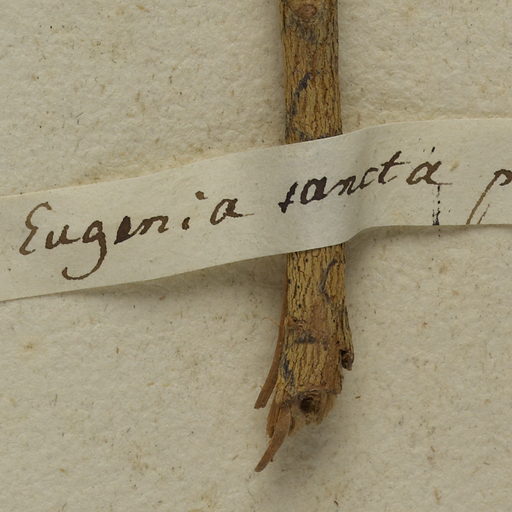 Eugenia sancta p